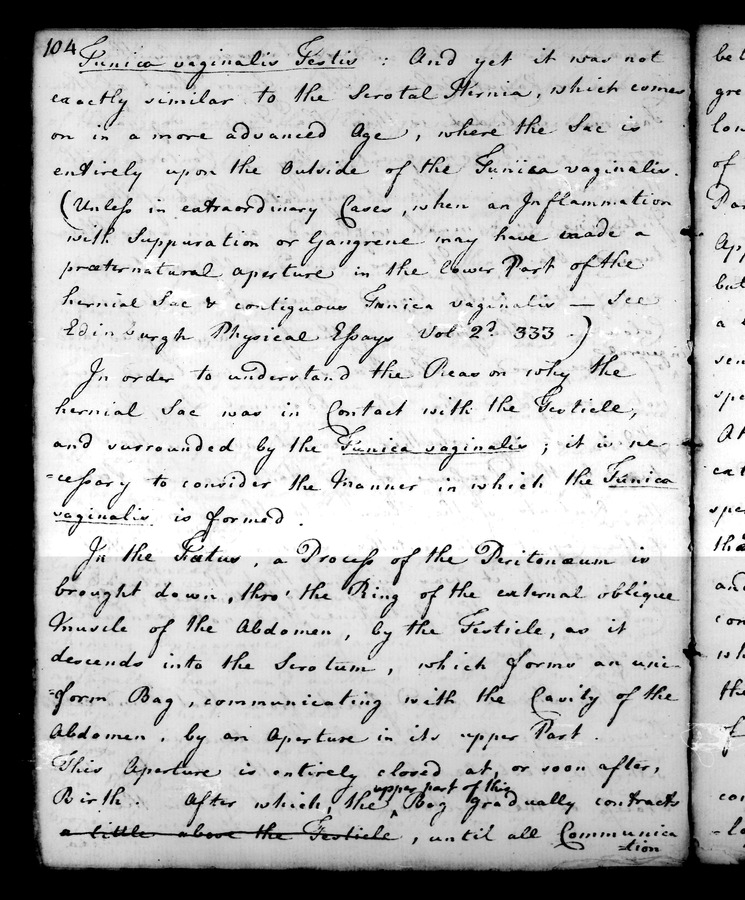 104
Tunica vaginalis Testis : And yet it was not
exactly similar to the Scrotal Hernia, which comes
on in a more advanced Age, where the Sac is
entirely upon the Outside of the Tunica vaginalis.
(Unless in extraordinary Cases, when an Inflammation
with Suppuration or Gangrene may have made a
præternatural aperture in the lower Part of the
hernial Sac & contiguous Tunica vaginalis — See
Edinburgh Physical Essays Vol 2d 333 .)
In order to understand the Reason why the
hernial Sac was in Contact with the Testicle,
and surrounded by the Tunica vaginalis ; it is ne
=cessary to consider the Manner in which the Tunica
vaginalis is formed .
In the Fœtus, a Process of the Peritonæum is
brought down, thro' the Ring of the external oblique
Muscle of the Abdomen, by the Testicle, as it
descends into the Scrotum, which forms an uni-
=form Bag, communicating with the Cavity of the
Abdomen, by an Aperture in its upper Part .
This Aperture is entirely closed at, or soon after,
Birth . After which, the upper part of this Bag gradually contracts
a little above the Testicle, until all Communica
=tion
bet
gre
lon
of
Par
App
but
a
sen
spe
At
ext
spe
the
and
con
wh
the
f
con